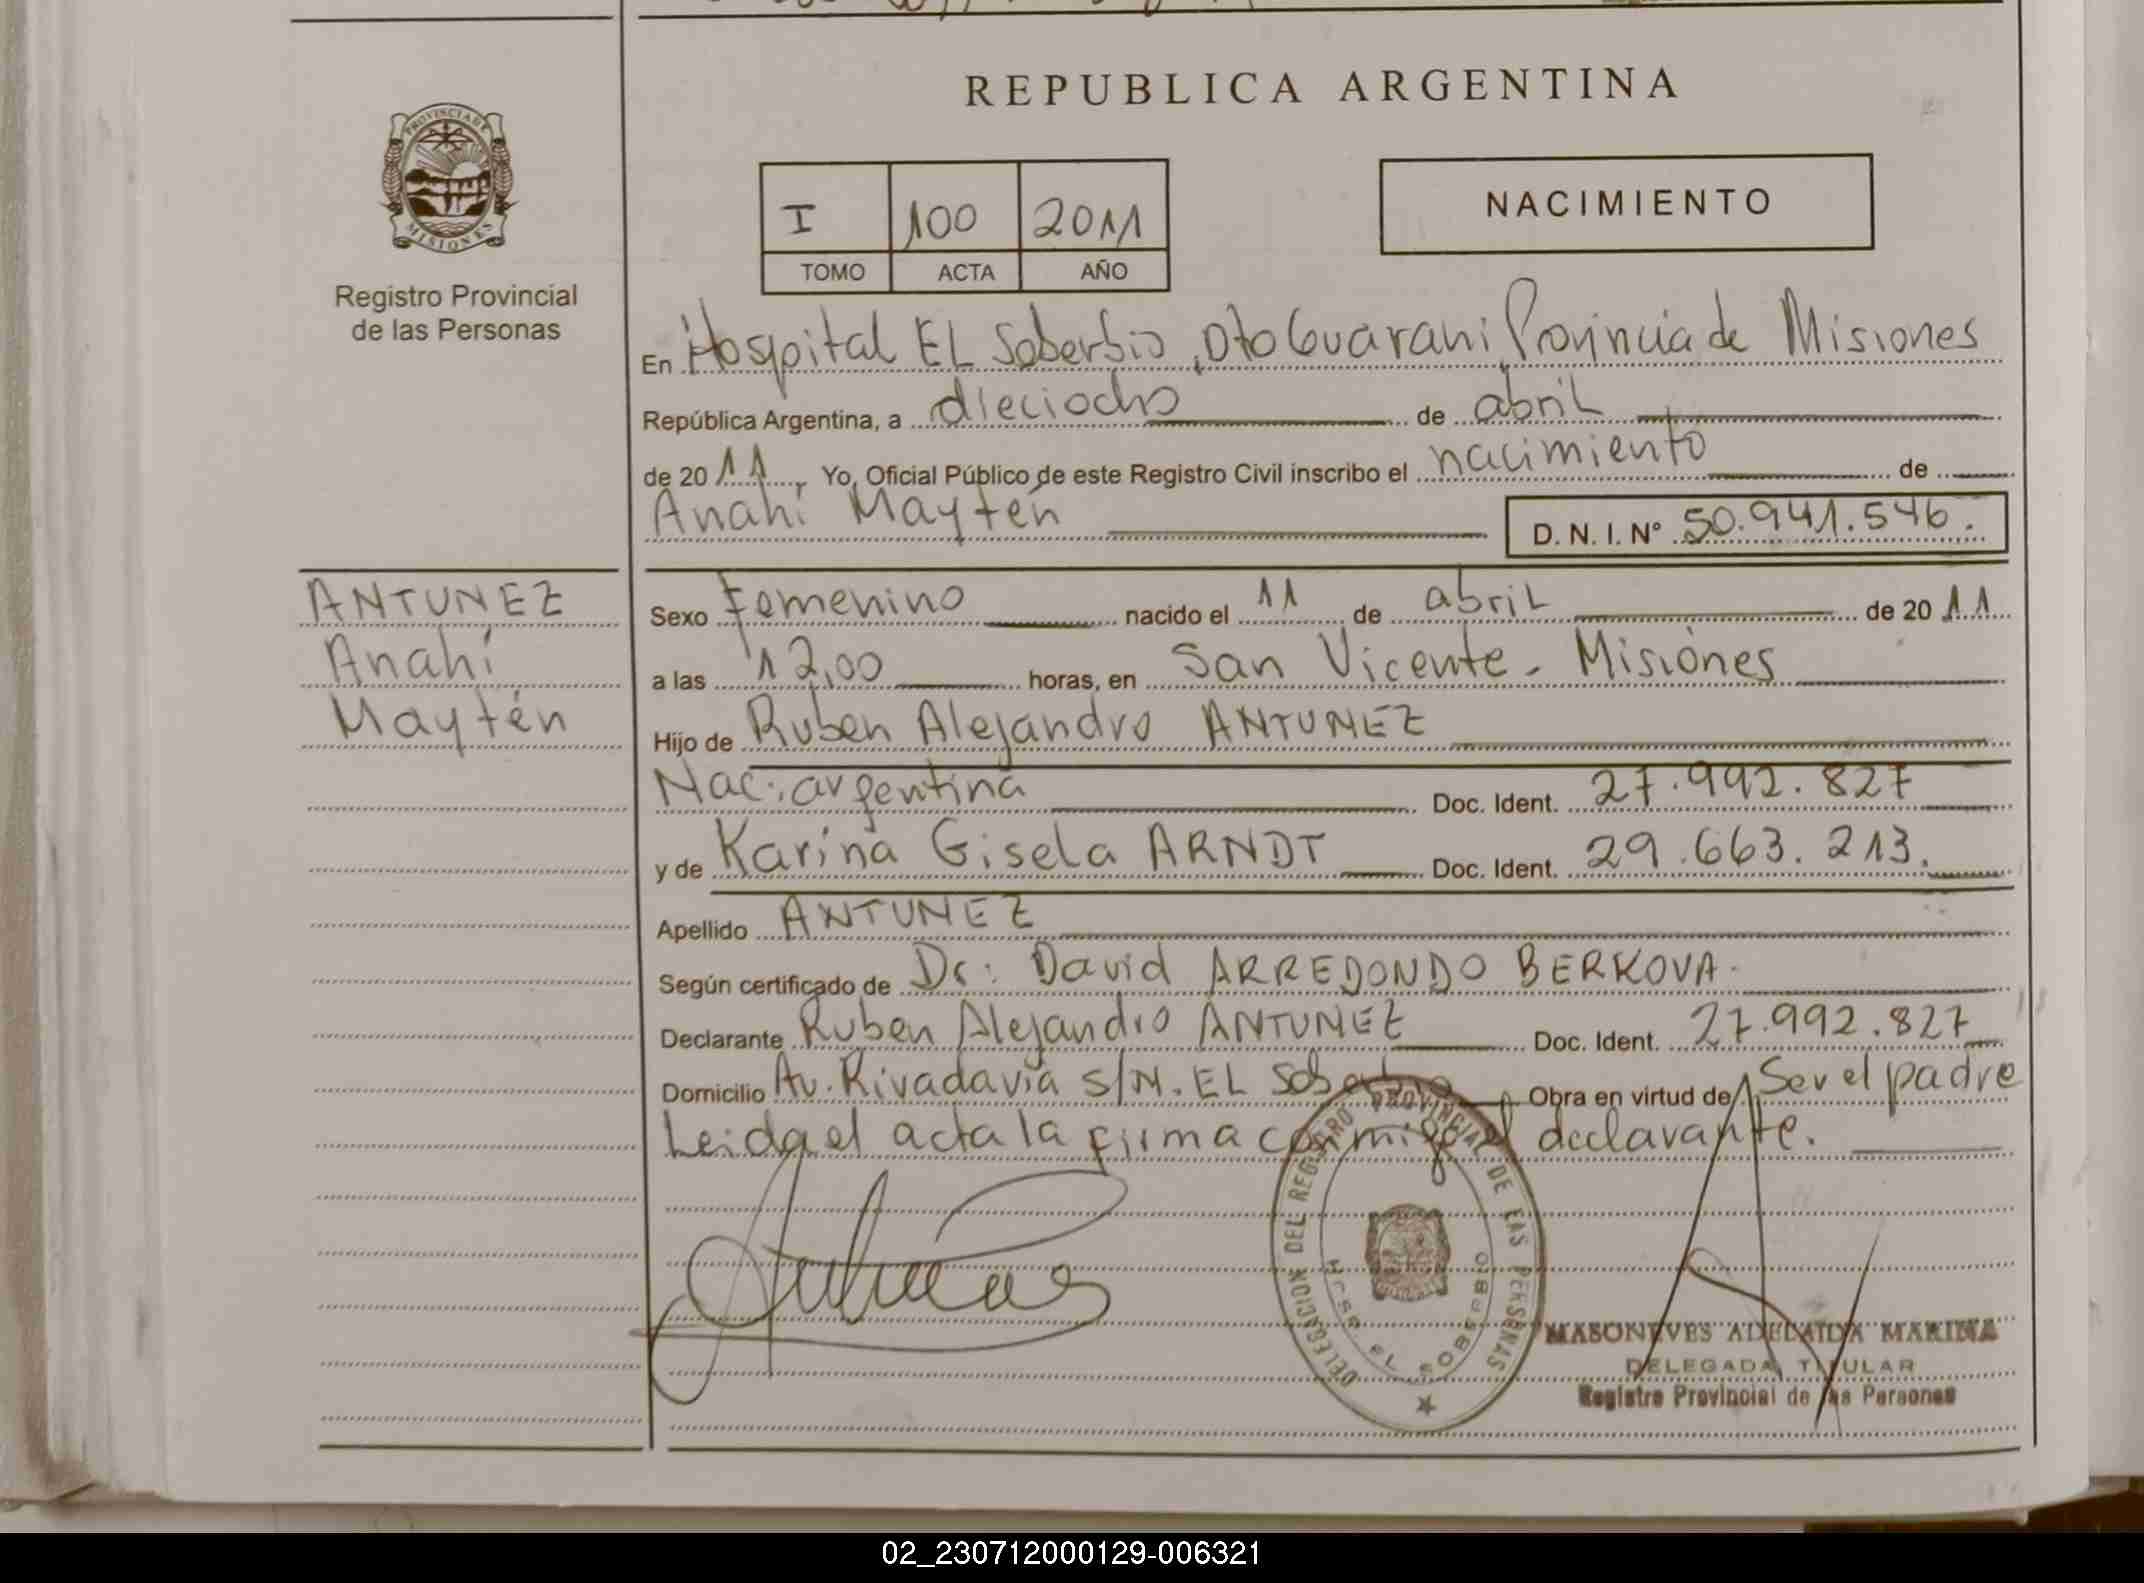 REPUBLICA ARGENTINA
PROVINCIA DE
MISIONES
Registro Provincial
de las Personas
I 100 2011
TOMO ACTA AÑO
NACIMIENTO
En Hospital EL Soberbio, Dto Guarani Provincia de Misiones
República Argentina, a dieciocho de abril
de 2011, Yo, Oficial Público de este Registro Civil inscribo el nacimiento de
Anahí Maytén
D. N. I. Nº 50.941.546.
ANTUNEZ
Anahí
Maytén
Sexo Femenino nacido el 11 de abril de 2011
a las 12,00 horas, en San Vicente - Misiones
Hijo de Ruben Alejandro ANTUNEZ
Nac: argentina Doc. Ident. 27.992.827
y de Karina Gisela ARNDT Doc. Ident. 29.663.213.
Apellido ANTUNEZ
Según certificado de Dr: David ARREDONDO BERKOVA.
Declarante Ruben Alejandro ANTUNEZ Doc. Ident. 27.992.827
Domicilio Av. Rivadavia S/N. EL Soberbio Obra en virtud de Ser el padre
Leida el acta la firma conmigo el declarante.
DELEGACION DEL REGISTRO PROVINCIAL DE LAS PERSONAS
EL SOBERBIO
MASONEVES ADELAIDA MARINA
DELEGADA TITULAR
Registro Provincial de las Personas
02_230712000129-006321